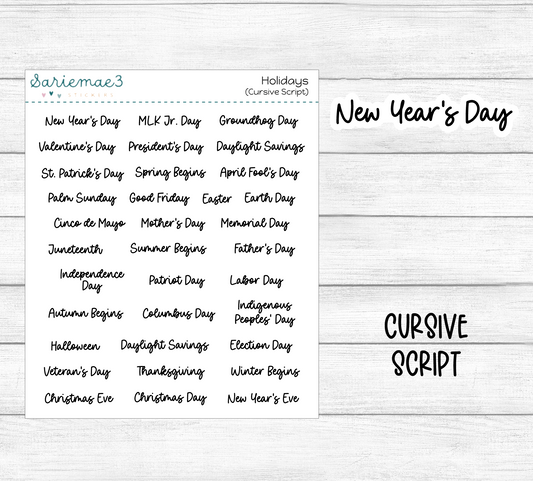 Sariemae3
STICKERS
Holidays
(Cursive Script)
New Year's Day MLK Jr. Day Groundhog Day
Valentine's Day President's Day Daylight Savings
St. Patrick's Day Spring Begins April Fool's Day
Palm Sunday Good Friday Easter Earth Day
Cinco de Mayo Mother's Day Memorial Day
Juneteenth Summer Begins Father's Day
Independence
Day
Patriot Day Labor Day
Autumn Begins Columbus Day
Indigenous
Peoples' Day
Halloween Daylight Savings Election Day
Veteran's Day Thanksgiving Winter Begins
Christmas Eve Christmas Day New Year's Eve
New Year's Day
CURSIVE
SCRIPT